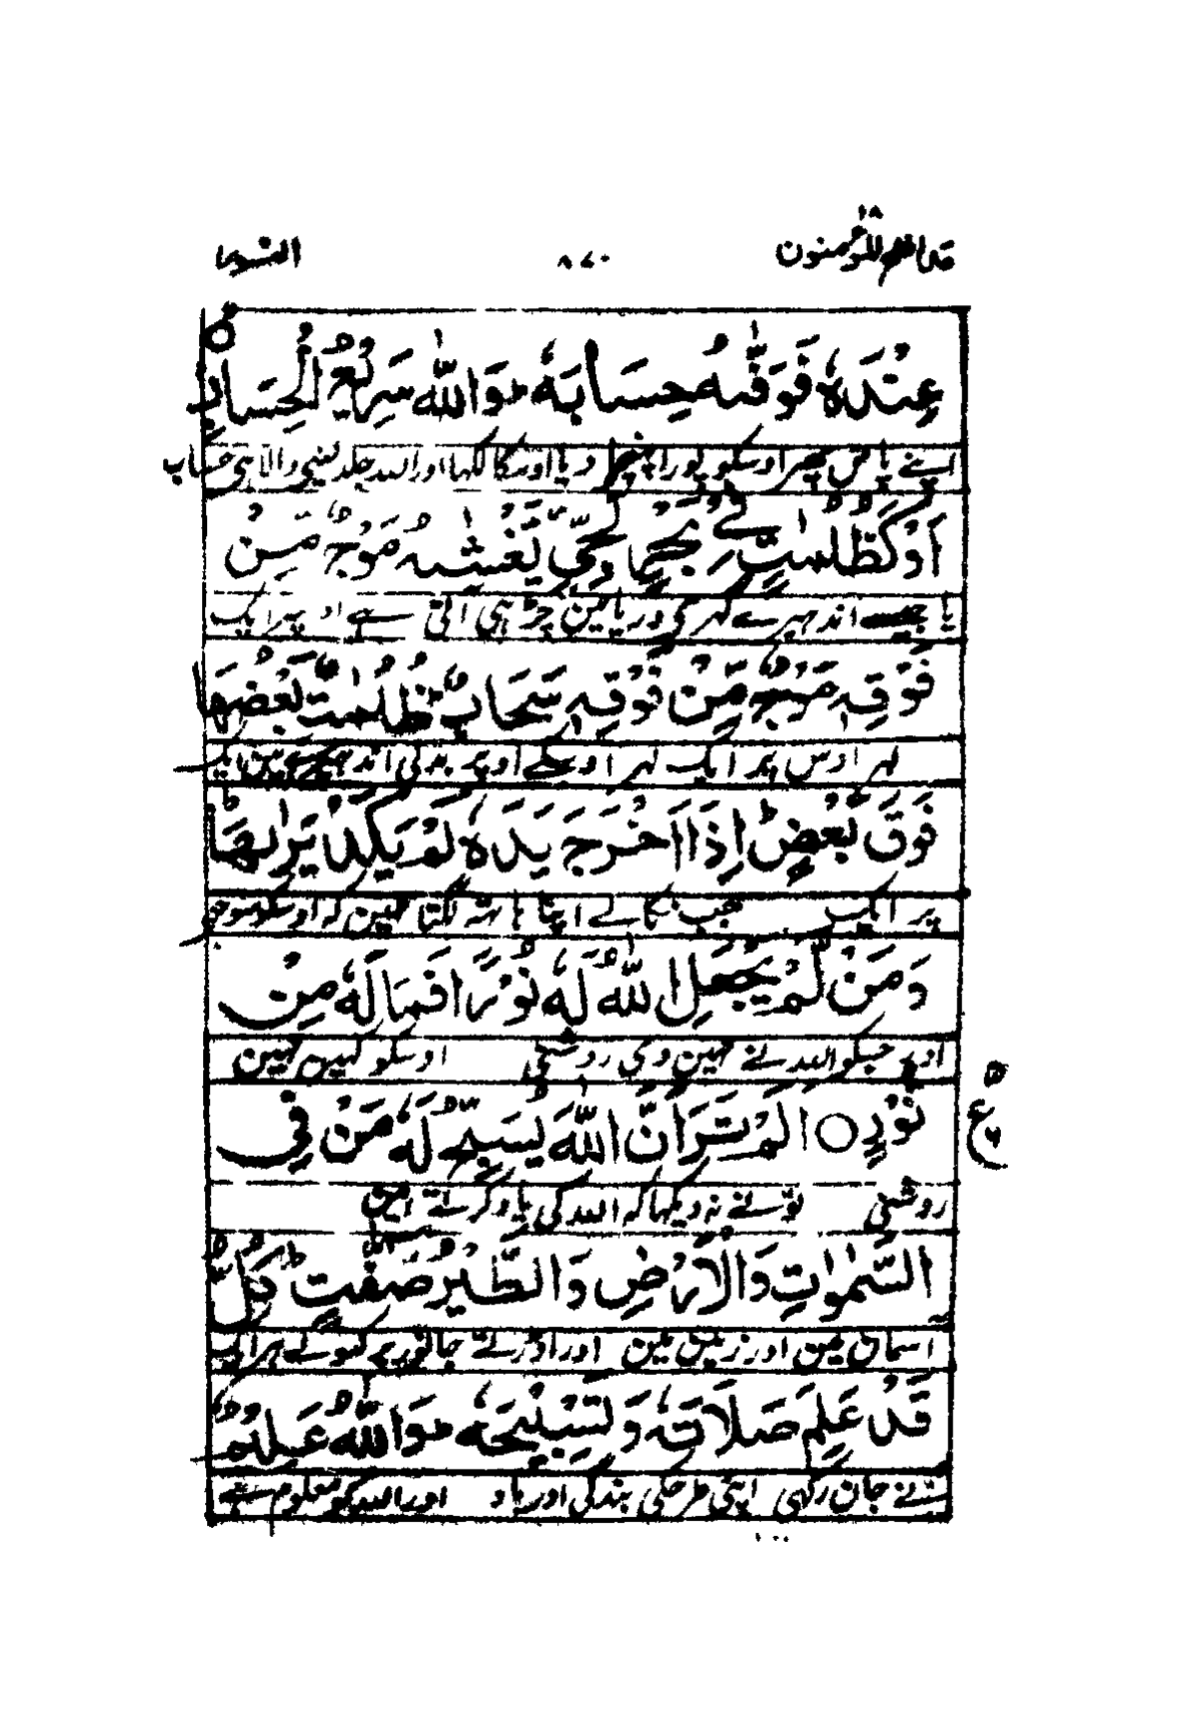 ١٨
قد افلح المؤمنون ٨٧٠ النور
عِنْدَهٗ فَوَفّٰىهُ حِسَابَهٗ ؕ وَاللّٰهُ سَرِيْعُ الْحِسَابِ ۙ○
اپنے پاس پھر اوسکو پورا پہنچا دیا اوسکا لکھا اور اللہ جلد لینی والا ہی حساب
اَوْ كَظُلُمٰتٍ فِيْ بَحْرٍ لُّجِّيٍّ يَّغْشٰىهُ مَوْجٌ مِّنْ
یا جیسے اندہیرے گہرے دریا مین چڑہی آتی ہے اوپر ایک
فَوْقِهٖ مَوْجٌ مِّنْ فَوْقِهٖ سَحَابٌ ؕ ظُلُمٰتٌۢ بَعْضُهَا
لہر اوس پر ایک لہر اوسکے اوپر بدلی اندہیرے ہین ایک
فَوْقَ بَعْضٍ ؕ اِذَاۤ اَخْرَجَ يَدَهٗ لَمْ يَكَدْ يَرٰىهَا ؕ
پر ایک جب نکالے اپنا ہاتہ لگتا نہین کہ اوسکو سوجہی
وَمَنْ لَّمْ يَجْعَلِ اللّٰهُ لَهٗ نُوْرًا فَمَا لَهٗ مِنْ
اور جسکو اللہ نے نہین دی روشنی اوسکو کہین نہین
نُّوْرٍ ○ اَلَمْ تَرَ اَنَّ اللّٰهَ يُسَبِّحُ لَهٗ مَنْ فِي
ع
روشنی تو نے نہ دیکہا کہ اللہ کی یاد کرتے ہین
السَّمٰوٰتِ وَالْاَرْضِ وَالطَّيْرُ صٰٓفّٰتٍ ؕ كُلٌّ
آسمان مین اور زمین مین اور اوڑتے جانور پر کہولے ہر ایک
قَدْ عَلِمَ صَلَاتَهٗ وَتَسْبِيْحَهٗ ؕ وَاللّٰهُ عَلِيْمٌۢ
نے جان رکہی اپنی طرحکی بندگی اور یاد اور اللہ کو معلوم ہے